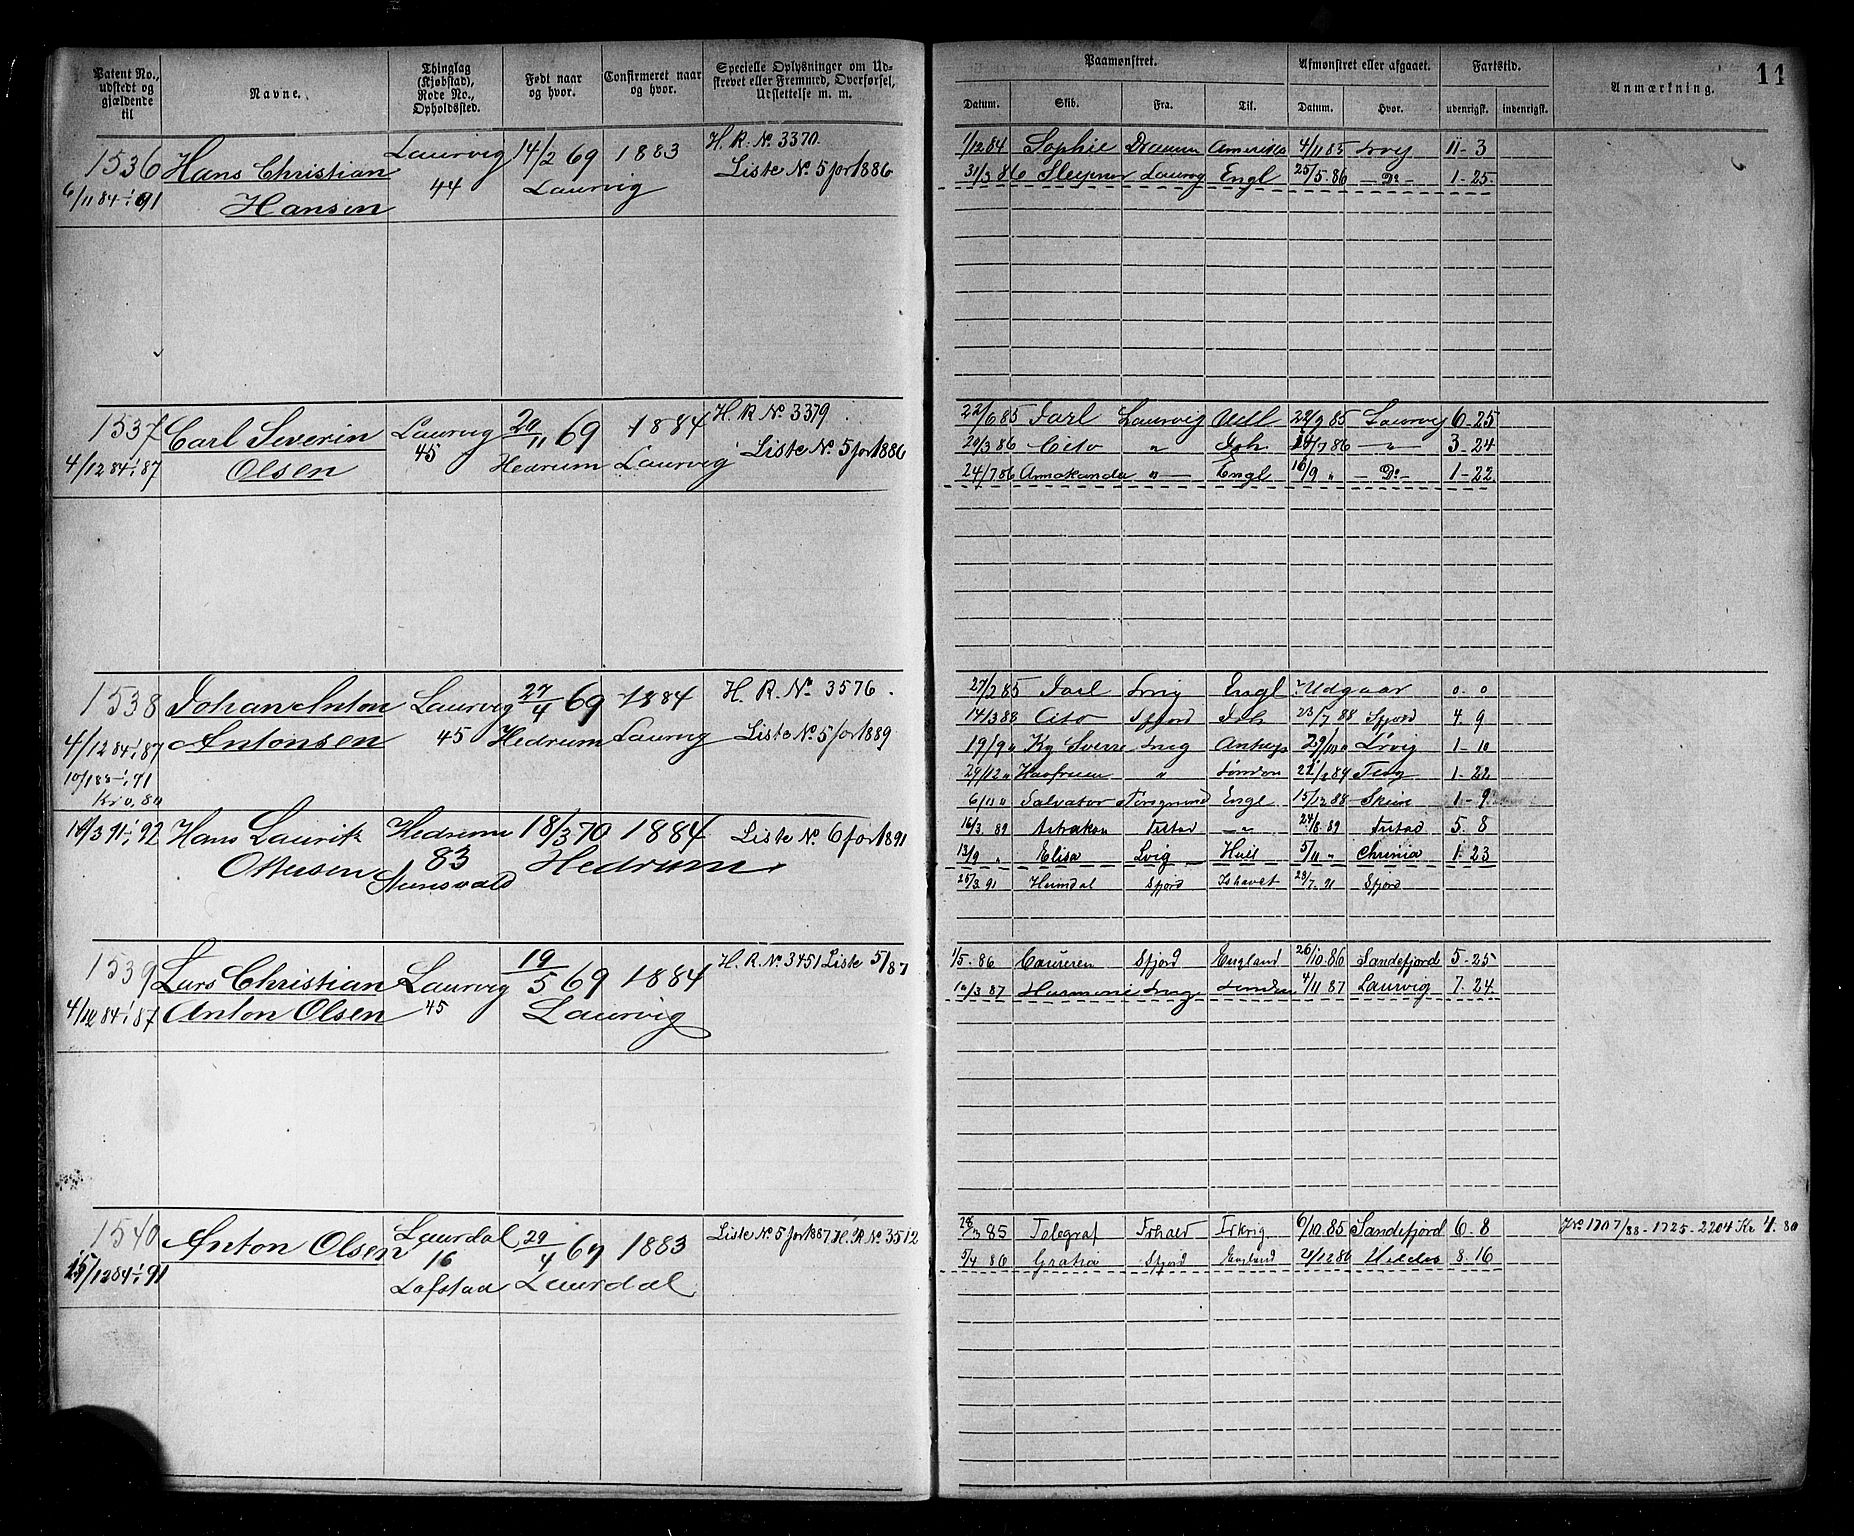 Patent No., udstedt og gjældende til
Navne.
Thinglag (Kjøbstad), Rode No., Opholdssted.
Født naar og hvor.
Confirmeret naar og hvor.
Specielle Oplysninger om Udskrevet eller Fremmed, Overførsel, Udslettelse m. m.
Paamønstret.
Afmønstret eller afgaaet.
Fartstid.
Anmærkning.
11
Datum. Skib. Fra. Til. Datum. Hvor. udenrigsk. indenrigsk.
1536 Hans Christian Laurvig 14/2 69 1883 H. R. No. 3370.
6/11 84 91 Hansen 44 Laurvig Liste No. 5 for 1886
1/12 84 Sophie Drammen Amerika 4/11 85 Lrvg 11-3
31/3 86 Sleipner Laurvg Engl 25/5 86 - Do - 1-25
1537 Carl Severin Laurvig 20/11 69 1884 H. R. No. 3379
4/12 84 87 Olsen 45 Hedrum Laurvig Liste No. 5 for 1886
22/6 85 Jarl Laurvig 22/9 85 Laurvig 6-25
20/3 86 Cito " 3-24
24/7 86 Amokanda " Engl 16/9 " - Do - 1-22
1538 Johan Anton Laurvig 27/4 69 1884 H. R. No. 3576.
4/12 84 87 Antonsen 45 Hedrum Laurvig Liste No. 5 for 1889
27/2 85 Jarl Lrvig Engl Udgaar 0. 0
14/3 88 Cito Sfjord 23/7 88 Sfjord 4. 9
19/9 " Kg Sverre Lrvig Antwp Lrvig 1-10
29/12 " Havfruen " London 1-22
6/11 " Salvator Engl 15/12 88 Skien 1-9
16/3 89 24/8 89 5. 8
13/9 " Elisa Lvig Hull 5/11 " Chrinia 1 23
14/3 91 92 Hans Laurik Hedrum 18/3 70 1884 Liste No. 6 for 1891
Ottersen 83 Hedrum
25/3 91 Heimdal Sfjord Ishavet 28/7 91 Sfjord
1539 Lars Christian Laurvig 19/5 69 1884 H. R. No. 3451 Liste 5/87
4/12 84 87 Anton Olsen 45 Laurvig
1/5. 86 Sfjord England 26/10. 86 Sandefjord 5-25
10/3 87 Harmonie Lrvig London 4/11 87 Laurvig 7. 24
1540 Anton Olsen Laurdal 29/4 69 1883 Liste No. 5 for 1887 H. R. No. 3512
15/12 84 91 16 Laurdal
Lofstad
28/3 85 Telegraf 6/10. 85 Sandefjord 6. 8 Jno 1707/88-1725-2204 Kr 4. 80
5/4 86 Gratia Sfjord England 21/12 86 8. 16